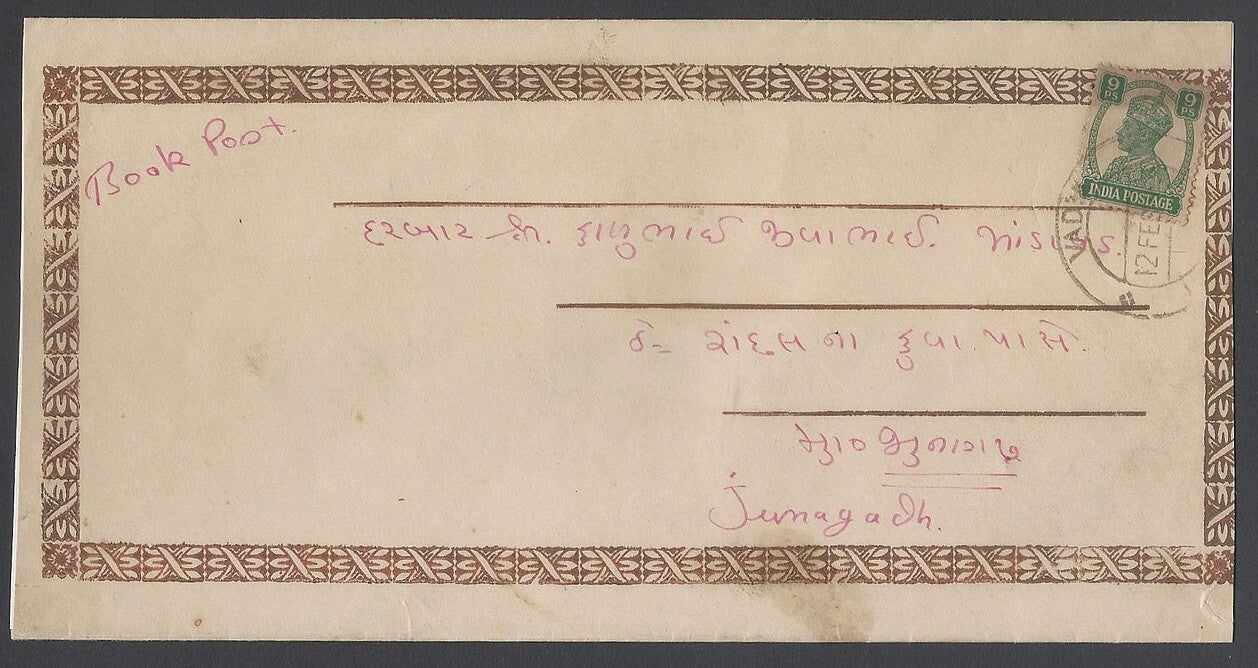 Book Post.
9 PS 9 PS
INDIA POSTAGE
VAD
12 FEB
દરબાર શ્રી. કાળુભાઈ જીવાભાઈ.
ઠે= રાંદલના કુવા પાસે.
મુ૦ જુનાગઢ
Junagadh.